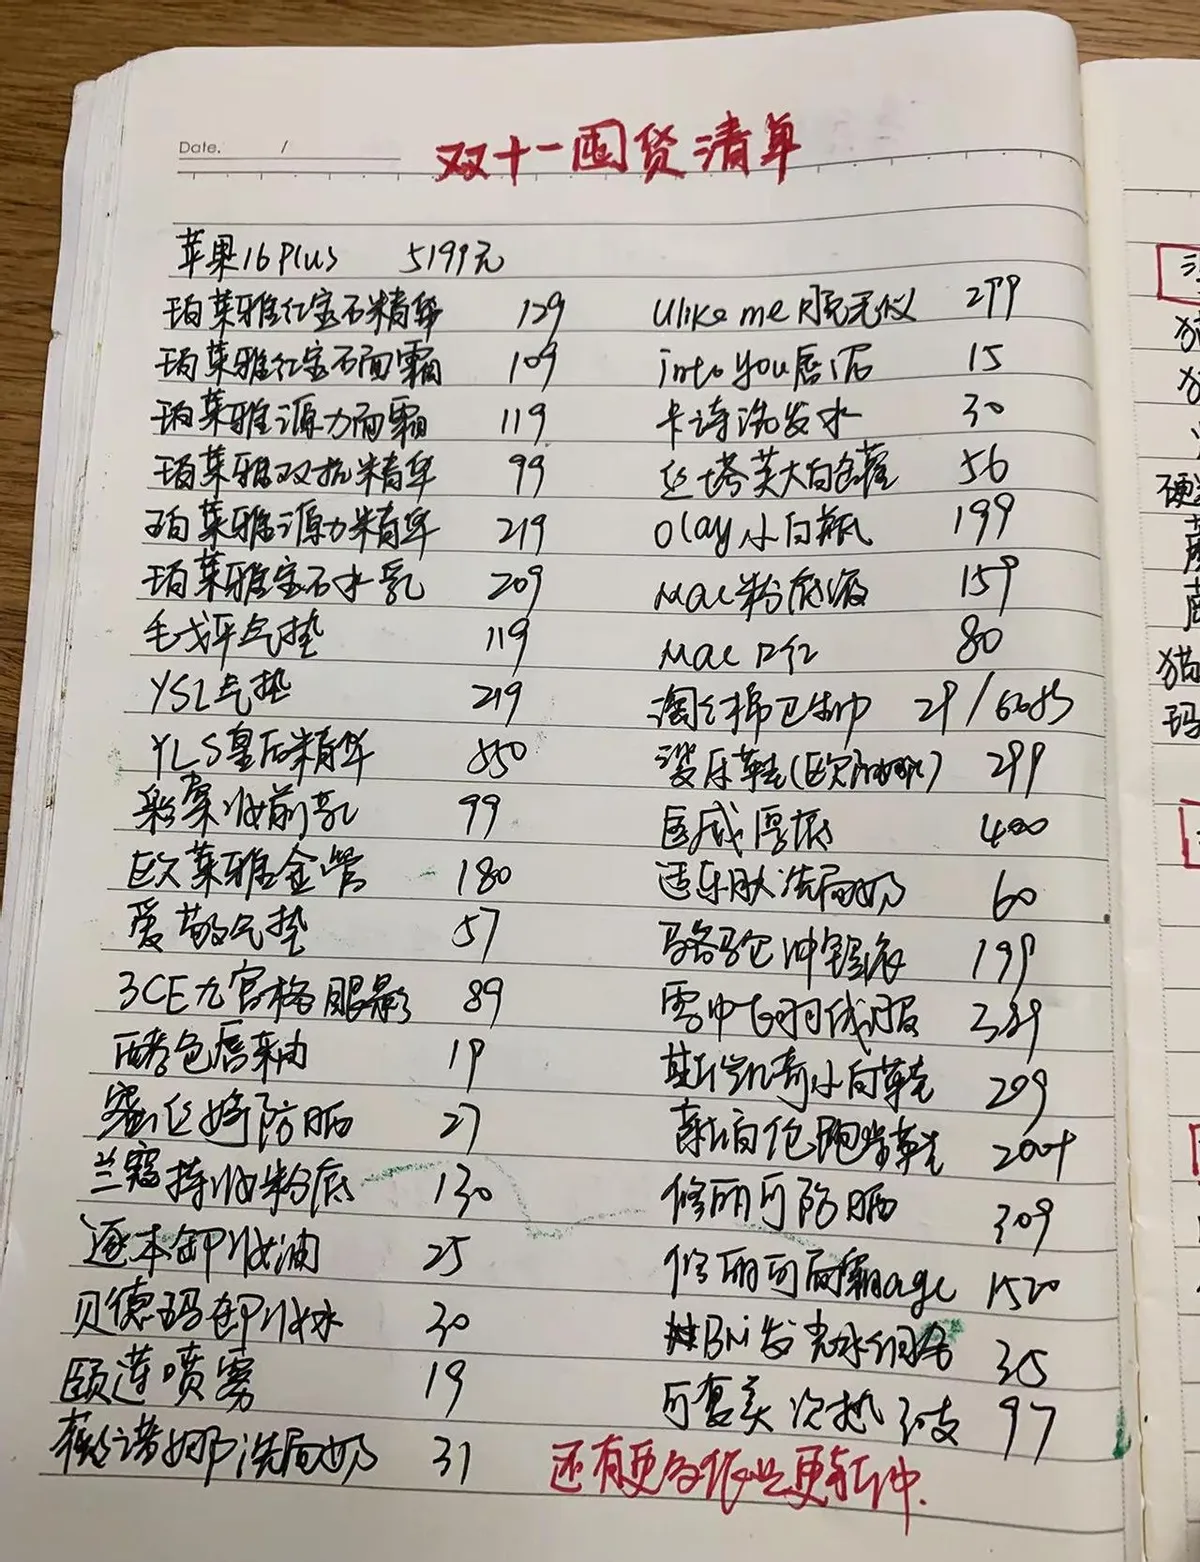 Date. /
双十一囤货清单
苹果16Plus 5199元
珀莱雅红宝石精华 129
珀莱雅红宝石面霜 109
珀莱雅源力面霜 119
珀莱雅双抗精华 99
珀莱雅源力精华 219
珀莱雅宝石水乳 209
毛戈平气垫 119
YSL气垫 219
YLS皇后精华 850
彩棠妆前乳 99
欧莱雅金管 180
爱敬气垫 57
3CE九宫格眼影 89
酵色唇釉 19
蜜丝婷防晒 27
兰蔻持妆粉底 130
逐本卸妆油 25
贝德玛卸妆水 30
颐莲喷雾 19
薇诺娜洗面奶 31
Ulike me脱毛仪 299
into you唇泥 15
卡诗洗发水 30
丝塔芙大白罐 56
Olay小白瓶 199
Mac粉底液 159
Mac口红 80
淘红棉卫生巾 29/60
洞洞鞋 299
400
适乐肤洗面奶 60
199
雪中飞羽绒服 389
斯凯奇小白鞋 209
新百伦跑步鞋 200+
修丽可防晒 309
修丽可面霜age 1520
315
可复美次抛30支 97
还有更多低价更新中.